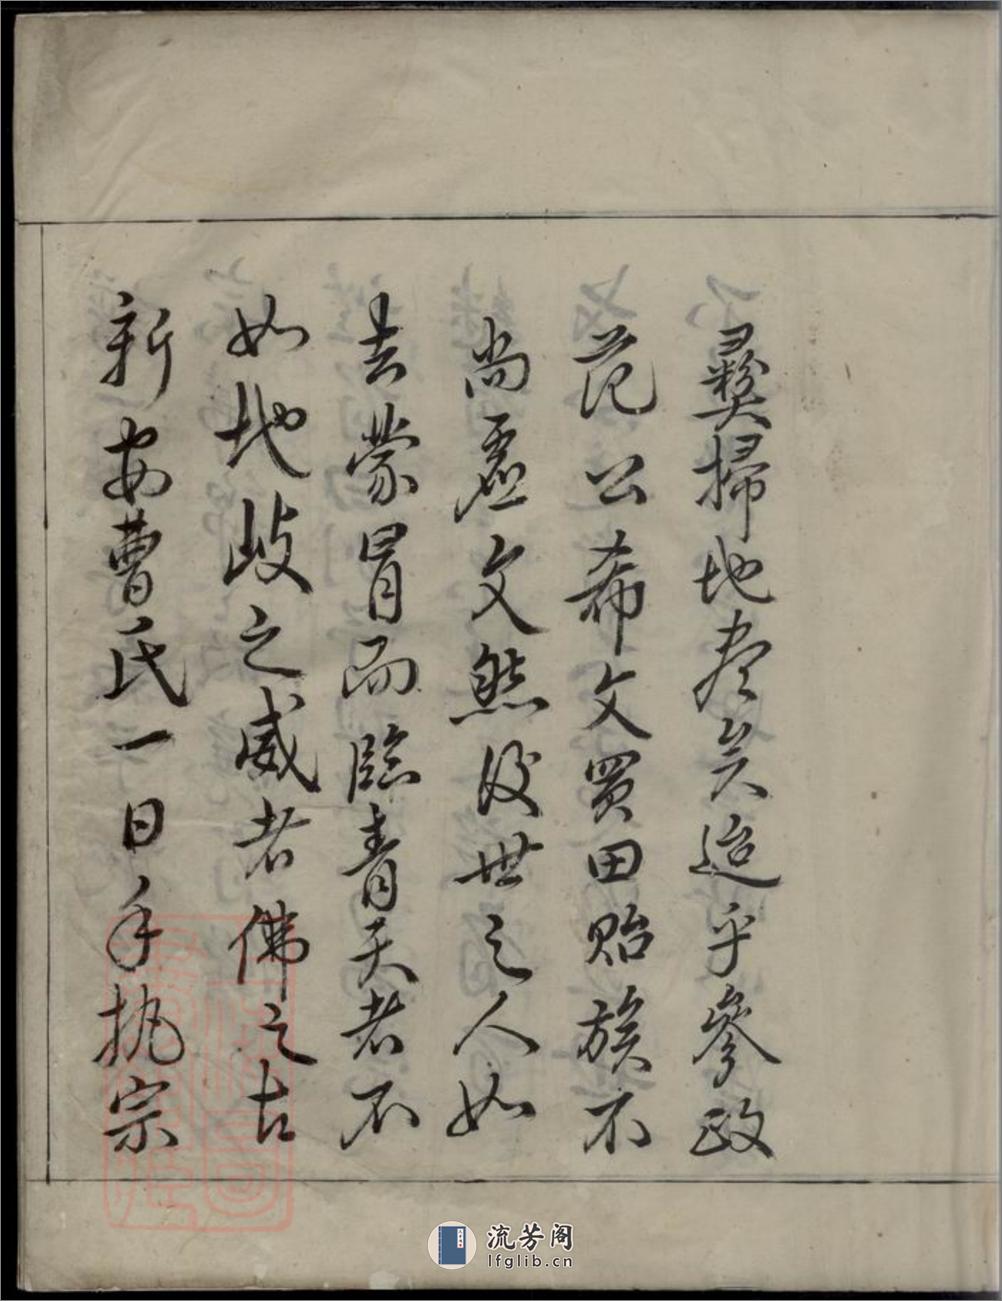 彝掃地盡矣迨乎參政
范公希文買田貽族不
尚虛文然後世之人如
去蒙冒而臨青天者不
如地歧之威者佛之古
新安曹氏一日手执宗
流芳阁
lfglib.cn